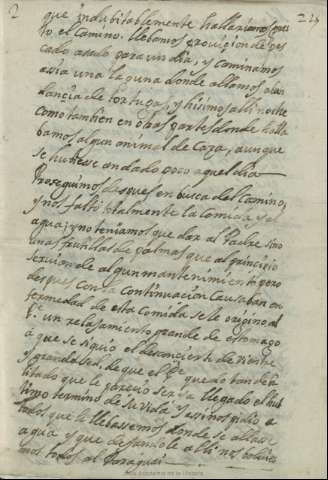 2
224
que indubitablemente hallariamos pres
to el Camino. llebamos provision de pes
cado asado para un dia, y caminamos
asia una laguna donde allamos abun
dancia de tortugas, y hisimos alli noche
como tambien en otras partes donde halla
bamos algun animal de Caza, aunque
se hubiese andado poco aquel dia
Proseguimos despues en busca del Camino,
y nos faltó totalmente la Comida y el
agua; y no teniamos que dar al Padre sino
unas frutillas de palmas que al principio
servian de algun mantenimiento pero
despues con la Continuacion Causaban en
fermedad de esta Comida se le originó al
Pe. un relajamiento grande de estomago
á que se siguió el desconcierto de vientre
y grande tal, de que el Pe. quedó tan debi
litado que le pareció seria llegado el ul
timo termino de su vida y assi nos pidio a
todos que le llebassemos donde se allase
agua y que dejandole alli nos bolviese
mos todos al Paraguai
Real Academia de la Historia